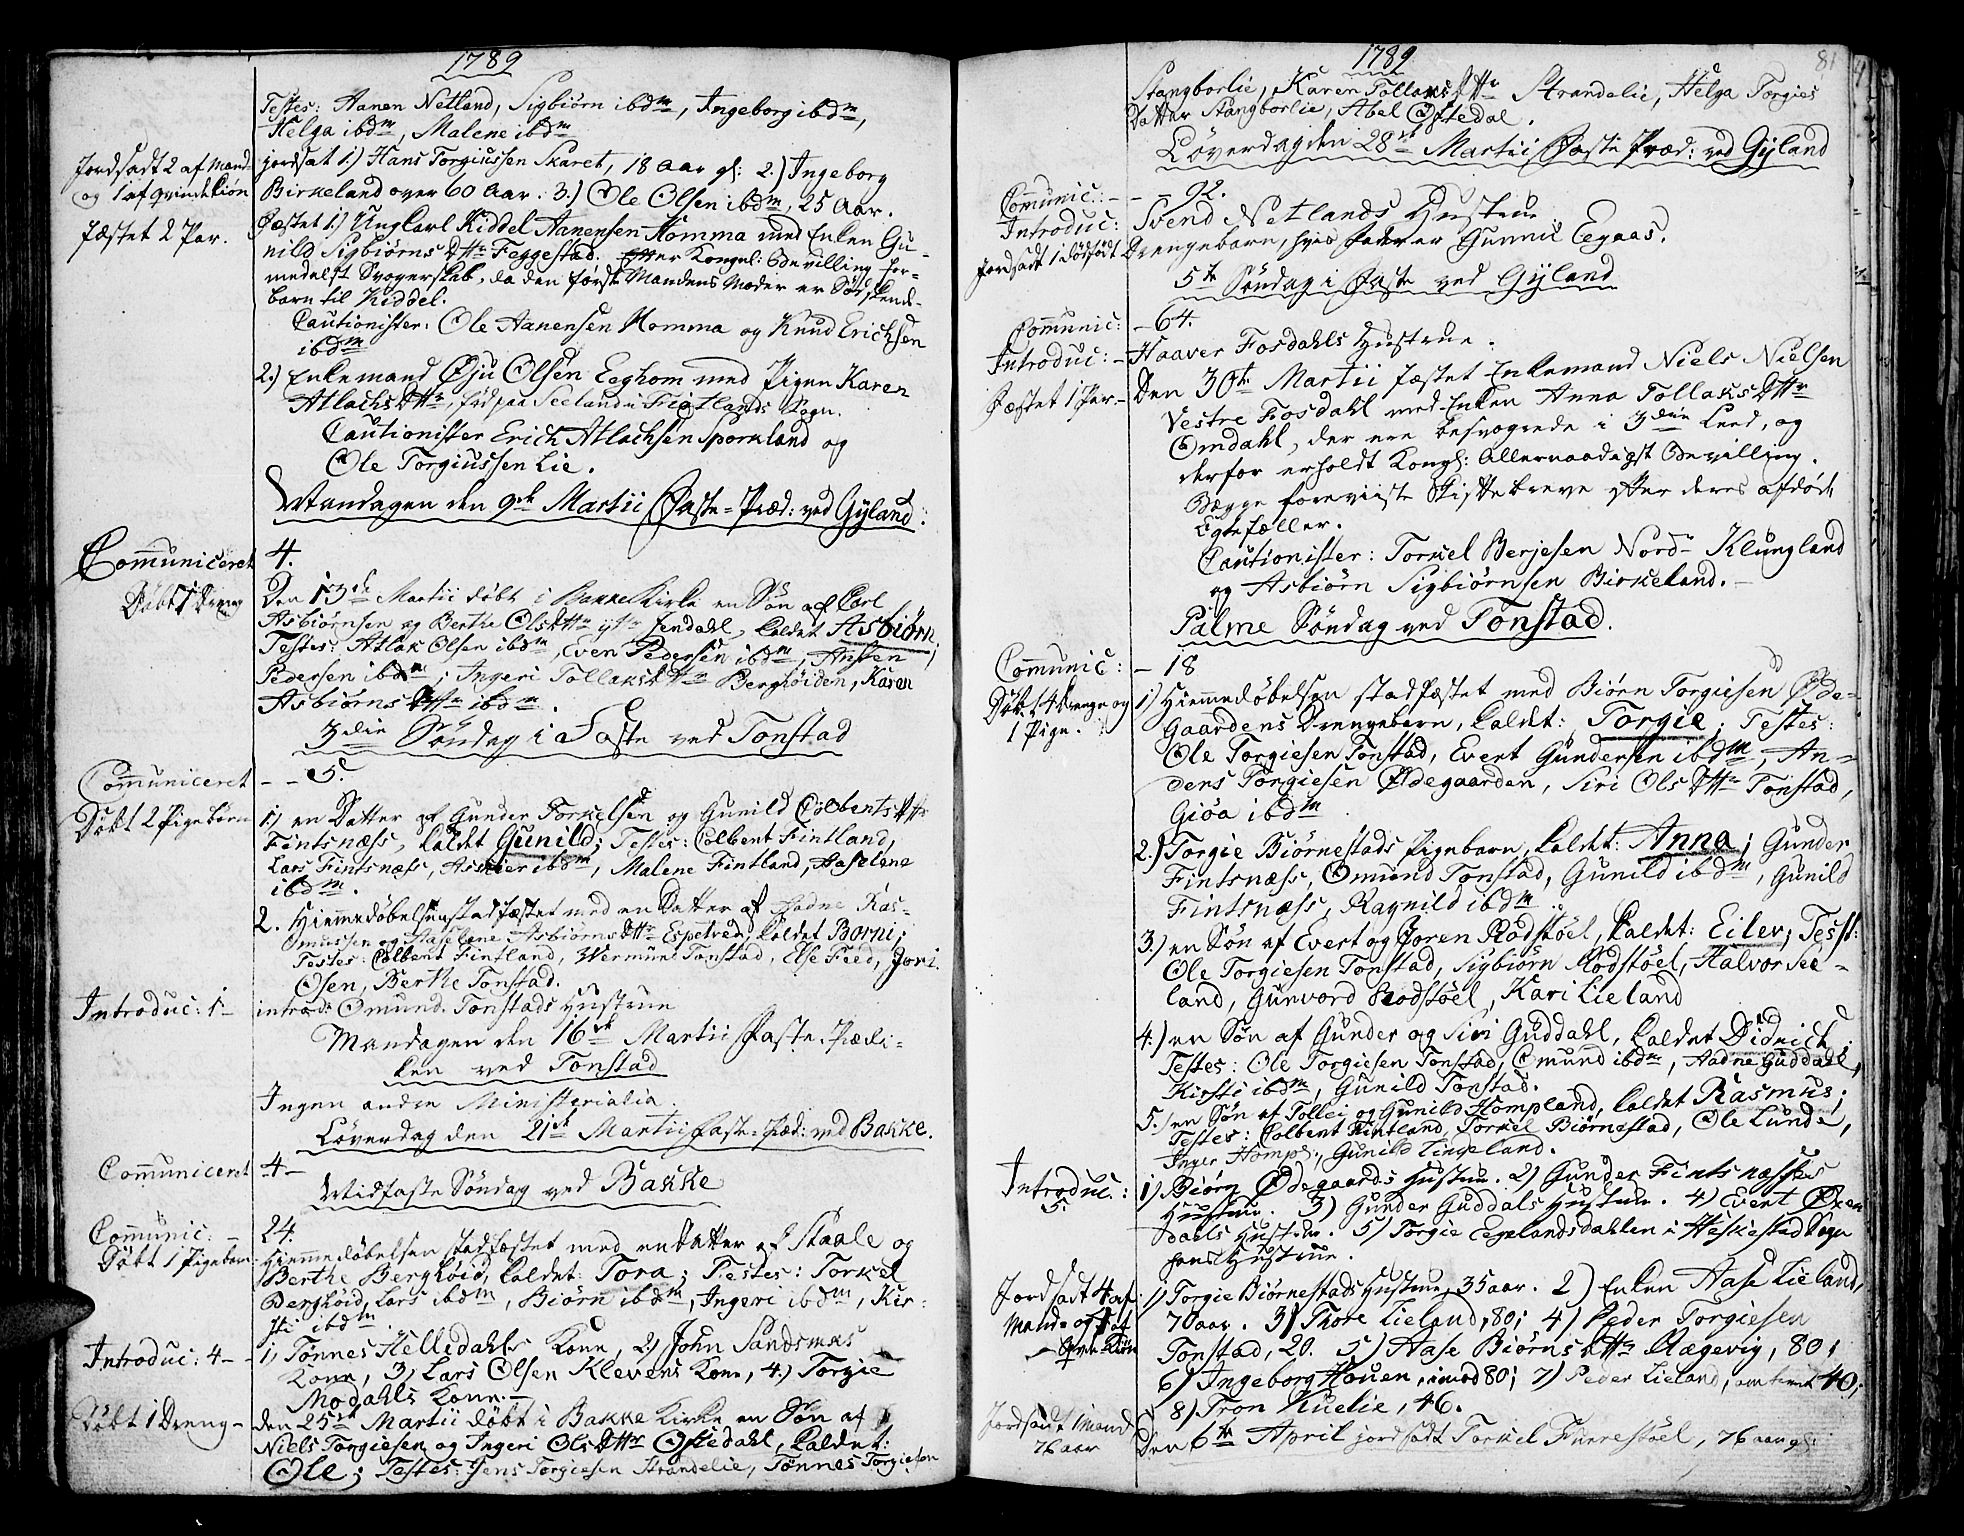 1789
Testes: Aanen Netland, Sigbiørn ibdm, Ingeborg ibdm,
Helga ibdm, Malene ibdm
Jordsadt 2 af Mand-
og 1 af Qvindekiøn
jordsat 1) Hans Torgiussen Skaret, 18 aar gl: 2.) Ingeborg
Birkeland over 60 Aar. 3.) Ole Olsen ibdm, 25 Aar.
Fæstet 2 Par.
Fæstet 1.) Ungkarl Kiddel Aanensen Homma med Enken Gu-
nild Sigbiørns Dttr Feggestad. efter Kongel: Bevilling for-
medelst Svogerskab, da den første Mandens Moder er Sødskende-
barn til Kiddel.
Cautionister: Ole Aanensen Homma og Knud Erichsen
ibdm
2.) Enkemand Øju Olsen Eeghom med Pigen Karen
Atlachs Dttr, fød paa Seeland i Sogn.
Cautionister Erich Atlachsen Sporkland og
Ole Torgiussen Lie.
Mandagen den 9de Martii Faste-Præd: ved Gyland:
Communiceret 4.
Døbt 1 Dreng
Den 13de Martii døbt i Bakke Kirke en Søn af Carl
Asbiørnsen og Berthe Ols Dttr ytr. Eendahl, kaldet Asbiørn;
Testes: Atlak Olsen ibdm, Even Pedersen ibdm, Austen
Pedersen ibdm, Ingeri Tollaks Dttr Berghøiden, Karen
Asbiørns Dttr ibdm.
3die Søndag i Faste ved Tonstad
Communiceret - - 5.
Døbt 2 Pigebørn
1.) en Datter af Gunder Torkelsen og Gunild Colbents Dttr
Fintsnæss, kaldet Gunild; Testes: Colbent Fintland,
Lars Fintsnæss, Asgier ibdm, Malene Fintland, Aaselene
ibdm.
2. Hiemmedøbelsen stadfæstet med en Datter af Aadne Ras-
mussen og Aaselene Asbiørns Dttr Espetved, kaldet Borni;
Testes: Colbent Fintland, Wermund Tonstad, Else Feed, Jori
Osen, Berthe Tonstad.
Introduc: 1-
introd: Omund Tonstads Hustrue
Mandagen den 16de Martii Faste-Prædi-
ken ved Tonstad
Ingen andre Ministerialia.
Løverdag den 21de Martii Faste-Præd: ved Bakke.
Communiceret -4-
Midfaste Søndag ved Bakke
Communic: - 24.
Døbt 1 Pigebarn
Hiemmedøbelsen stadfæstet med en Datter af Staale og
Berthe Berghøid, kaldet: Tora; Testes: Torkel
Berghøid, Lars ibdm, Biørn ibdm, Ingeri ibdm, Kir-
sti ibdm.
Introduc: 4-
1, Tønnes Hellidahls Kone, 2, John Sandsmas
Kone, 3, Lars Olsen Klevens Kone, 4.) Torgie
Modahls Kone.-
Døbt 1 Dreng-
den 25de Martii døbt i Bakke Kirke en Søn af
Niels Torgiesen og Ingeri Ols Dttr Oftedahl, kaldet:
Ole; Testes: Jens Torgiesen Strandelie, Tønnes Torgiesen
1789
81
Stangborlie, Karen Tollaks Dttr Strandelie, Helga Torgies
Datter Stangborlie, Abel Oftedal.
Løverdag den 28de Martii Faste Præd: ved Gyland
Communic: - - 92.
Introduc: Svend Netlands Hustrue
Jordsadt 1 dødfødt Drengebarn, hvis Fader er Gunnil Eegaas.
5te Søndag i Faste ved Gyland
Communic: -64.
Introduc: - Haaver Fosdahls Hustrue.
Fæstet 1 Par.-
Den 30te Martii fæstet Enkemand Niels Nielsen
Vestre Fosdahl med Enken Anna Tollaks Dttr
Omdahl, der ere besvogrede i 3die Leed, og
derfor erholdt Kongl: Allernaadigst Bevilling.
Begge foreviiste Skiftebreve efter deres afdøde
Egtefæller.
Cautionister: Torkel Berjesen Nordr Klungland
og Asbiørn Sigbiørnsen Birkeland.-
Palme Søndag ved Tonstad.
Communic: - 18
Døbt 4 Drenge og
1 Pige.
1) Hiemmedøbelsen stadfæstet med Biørn Torgiesen Øde-
Gaardens Drengebarn, kaldet: Torgie; Testes:
Ole Torgiesen Tonstad, Evert Gundersen ibdm, An-
ders Torgiesen Ødegaarden, Siri Ols Dttr Tonstad,
Gióa ibdm
2.) Torgie Biørnestads Pigebarn, kaldet: Anna; Gunder
Fintsnæss, Omund Tonstad, Gunild ibdm, Gunild
Fintsnæss, Ragnild ibdm.
3.) en Søn af Evert og Joren Rødstøel, kaldet: Eiler; Test:
Ole Torgiesen Tonstad, Sigbiørn Rødstøel, Halvor See-
land, Gunvord Rødstøel, Kari Lieland
4.) en Søn af Gunder og Siri Guddahl, kaldet Didrich;
Testes: Ole Torgiesen Tonstad, Omund ibdm, Aadne Guddahl,
Kirsti ibdm, Gunild Tonstad.
5.) en Søn af Tollei og Gunild Hompland, kaldet Rasmus;
Testes: Colbent Fintland, Torkel Biørnestad, Ole Lunde,
Inger Homp:, Gunild Lingeland.
Introduc.:
5.
1) Biørn Ødegaards Hustrue. 2) Gunder Fintsnæsses
Hustrue. 3) Gunder Guddals Hustrue. 4) Evert Øxen
daels Hustrue. 5) Torgie Eegelandsdahlen i Heskestad Sogn
hans Hustrue.
Jordsadt 4 af
Mand- og 4 af
Qvindekiøn
1) Torgie Biørnestads Hustrue, 35 aar. 2) Enken Aase Lieland,
70 aar. 3) Thore Lieland, 80; 4) Peder Torgiesen
Tonstad, 20. 5) Aase Biørns Dttr Rægevig, 80;
6) Ingeborg Houen, imod 80; 7) Peder Lieland, omtrent 40;
8) Tron Kuelie, 46.
Jordsadt 1 Mand
76 aar
Den 6te April jordsadt Torkel Furrestøel, 76 aar gl: